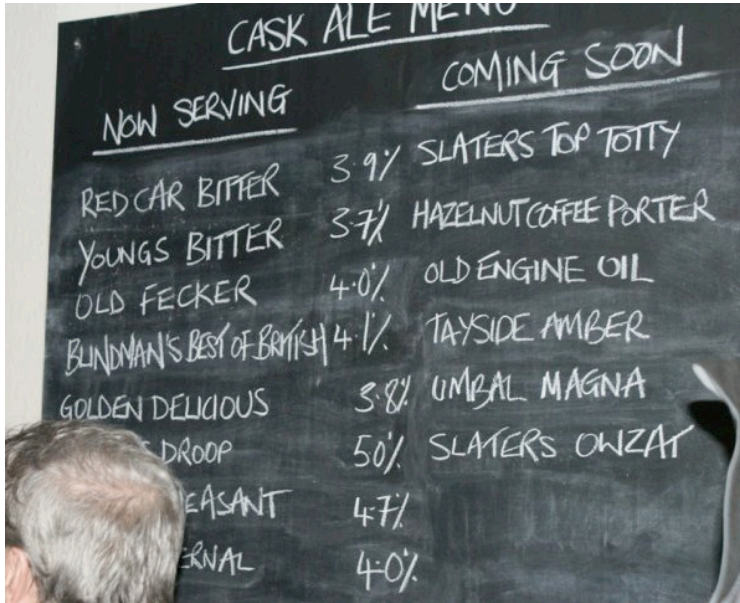 CASK ALE MENU
NOW SERVING
RED CAR BITTER 3.9%
YOUNGS BITTER 3.7%
OLD FECKER 4.0%
BLINDMAN'S BEST OF BRITISH 4.1%
GOLDEN DELICIOUS 3.8%
DROOP 50%
EASANT 4.7%
ERNAL 4.0%
COMING SOON
SLATERS TOP TOTTY
HAZELNUT COFFEE PORTER
OLD ENGINE OIL
TAYSIDE AMBER
UMBAL MAGNA
SLATERS OWZAT